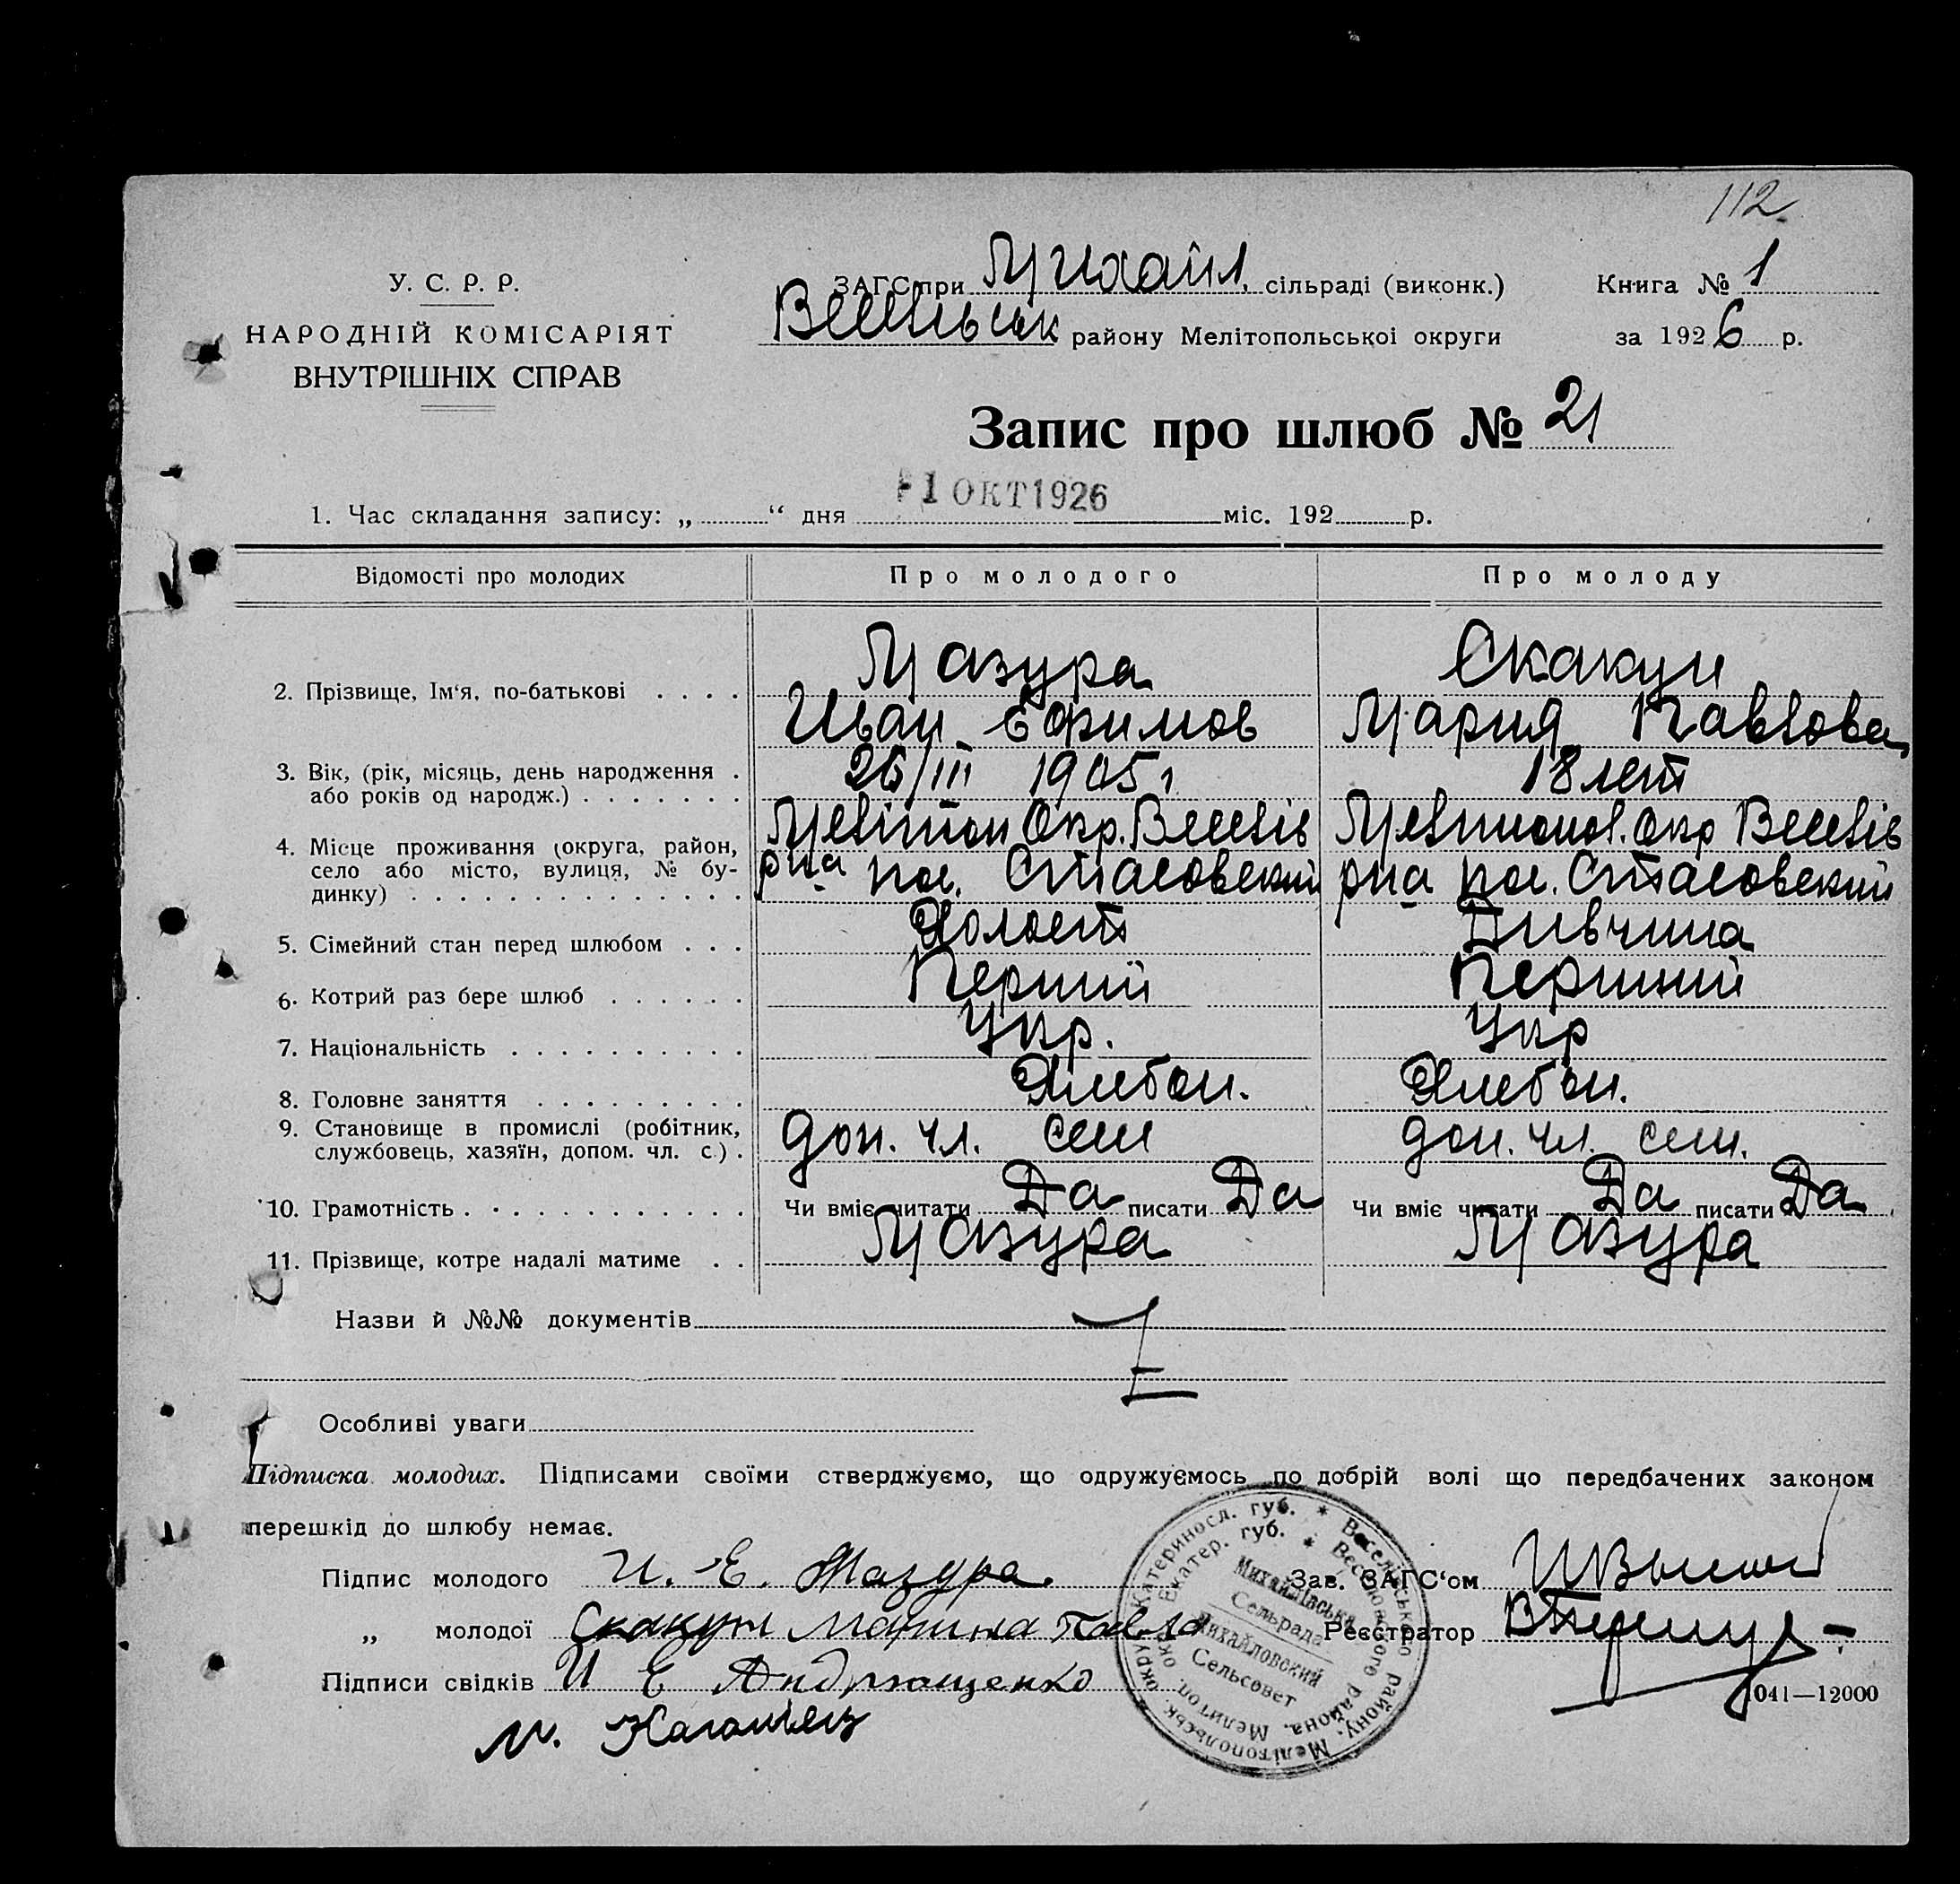 112
У. С. Р. Р.
НАРОДНІЙ КОМІСАРІЯТ
ВНУТРІШНІХ СПРАВ
ЗАГС при Михайл. сільраді (виконк.)
Веселівськ району Мелітопольської округи
Книга № 1
за 1926 р.
Запис про шлюб № 21
1. Час складання запису: „ “ дня 1 ОКТ 1926 міс. 192 р.
Відомості про молодих Про молодого Про молоду
2. Прізвище, Ім‘я, по-батькові . . . . Мазура Скакун
Иван Ефимов Мария Павлова
3. Вік, (рік, місяць, день народження . 26/III 1905 г 18 лет
або років од народж.) . . . . . . .
4. Місце проживання (округа, район, Мелітоп Окр. Веселів Мелитопол. окр Веселів
село або місто, вулиця, № бу- р-на пос. Стасовский р-на пос. Стасовский
динку) . . . . . . . . . . . . . .
5. Сімейний стан перед шлюбом . . . Холост Дивчина
6. Котрий раз бере шлюб . . . . . . Перший Перший
7. Національність . . . . . . . . . . Укр. Укр
8. Головне заняття . . . . . . . . . Хлебоп. Хлебоп.
9. Становище в промислі (робітник, доп. чл. сем доп. чл. сем.
службовець, хазяїн, допом. чл. с.) .
10. Грамотність . . . . . . . . . . . . Чи вміє читати Да писати Да Чи вміє читати Да писати Да
11. Прізвище, котре надалі матиме . . Мазура Мазура
Назви й №№ документів
Особливі уваги
Підписка молодих. Підписами своїми стверджуємо, що одружуємось по добрій волі що передбачених законом
перешкід до шлюбу немає.
Підпис молодого И. Е. Мазура.
„ молодої Скакун Марина Павло
Підписи свідків И Е Андрющенко
Зав. ЗАГС‘ом
Реєстратор
041—12000
Веселівського району, Мелітопольськ. округ. Катериносл. губ.
Веселовского района, Мелитоп. окр. Екатер. губ.
Михайлівська
Сельрада
Михайловский
Сельсовет